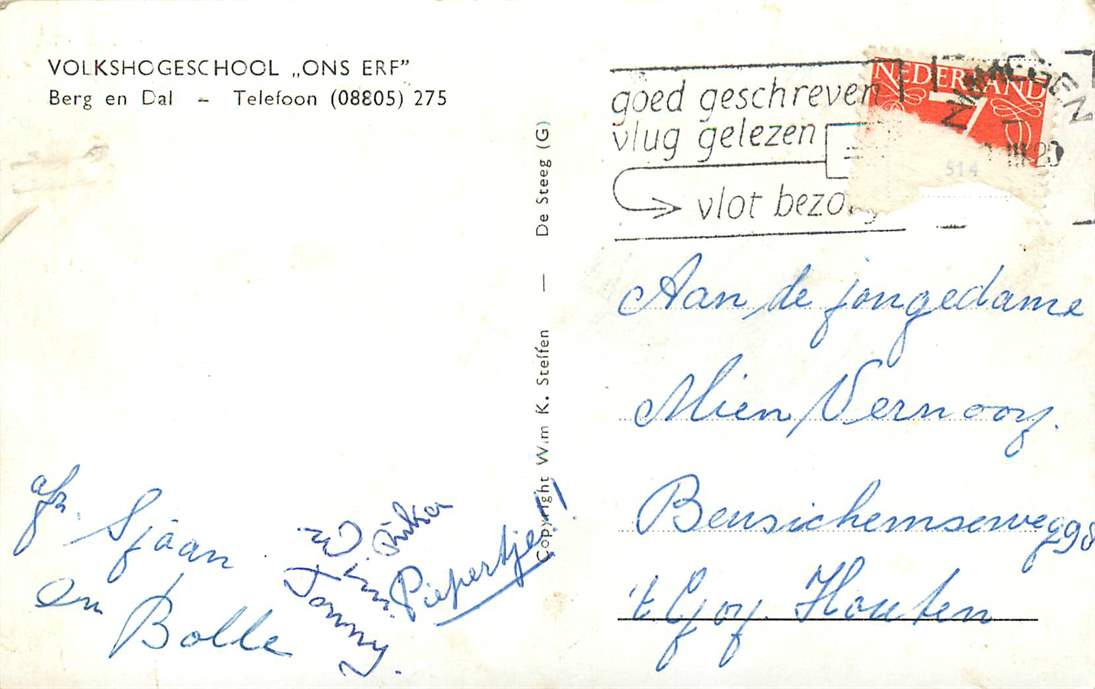 VOLKSHOGESCHOOL „ONS ERF"
Berg en Dal – Telefoon (08805) 275
afz. Sjaan
en Bolle
Rika
Cini
Jonny.
Piepertje!!
Copyright W.m K. Steffen — De Steeg (G)
goed geschreven
vlug gelezen
vlot bezorg
NEDERLAND
7
514
Aan de jongedame
Mien Vernooy.
Beusichemseweg 98
't Goy. Houten